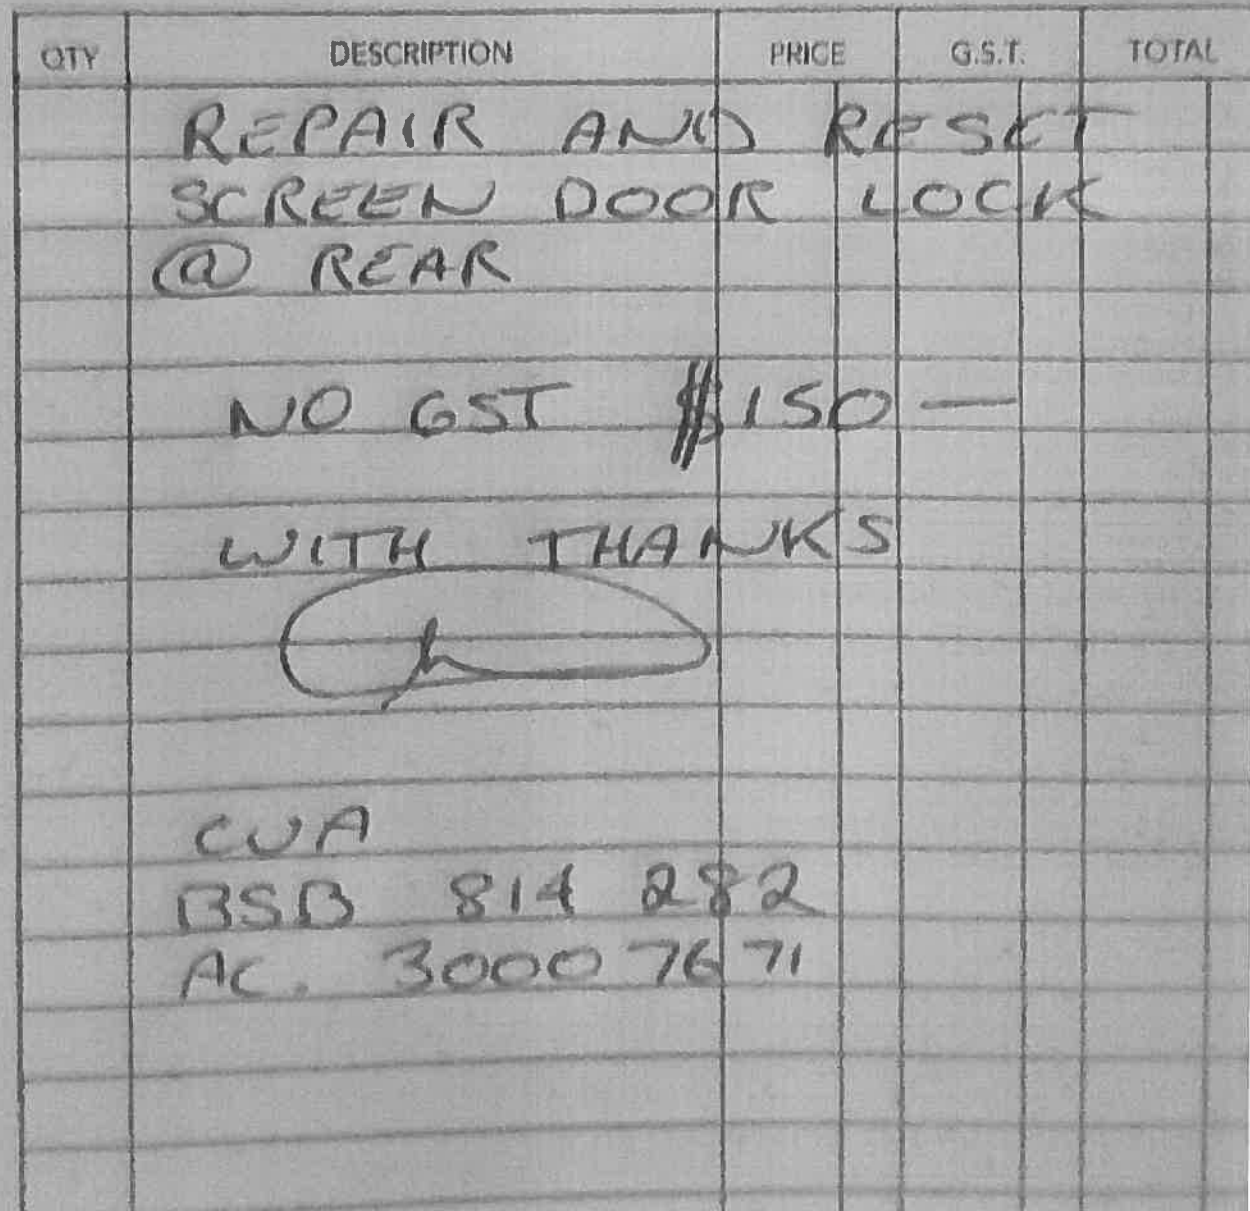 QTY DESCRIPTION PRICE G.S.T. TOTAL
REPAIR AND RESET
SCREEN DOOR LOCK
@ REAR
NO GST $150 —
WITH THANKS
CUA
BSB 814 282
AC. 3000 7671